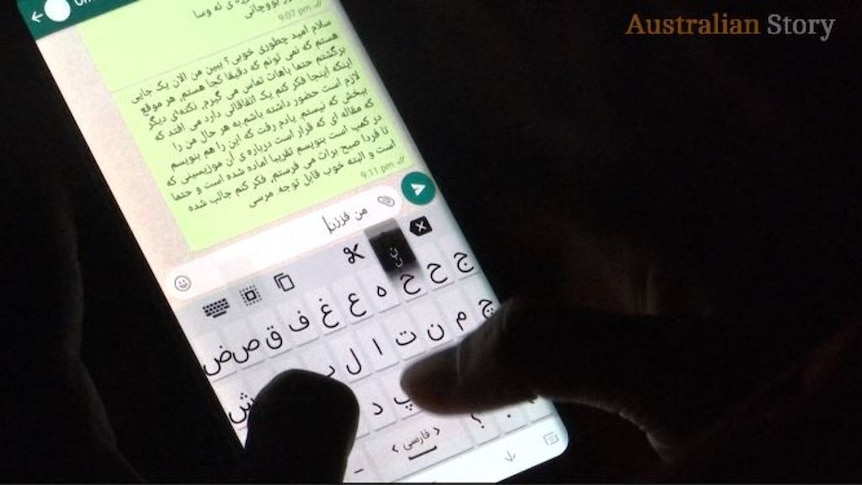 Australian Story
ی نه وسا
9:07 pm
سلام امید چطوری خوبی؟ ببین من الان یک جایی
هستم که نمی تونم که دقیقا کجا هستم. هر موقع
برگشتم حتما باهات تماس می گیرم. نکته‌ی دیگر
اینکه اینجا فکر کنم یک اتفاقاتی دارد می افتد که
لازم است حضور داشته باشم. به هر حال من را
ببخش که نیستم. یادم رفت که این را هم بنویسم
که مقاله ای که قرار است درباره ی آن موزیسینی که
در کمپ است بنویسم تقریبا اماده شده است و حتما
تا فردا صبح برات می فرستم. فکر کنم جالب شده
است و البته خوب قابل توجه. مرسی
9:11 pm
من فزرن
ض ص ق ف غ ع ه خ ح ج
ش ل ا ت ن م چ
د پ ؟
فارسی